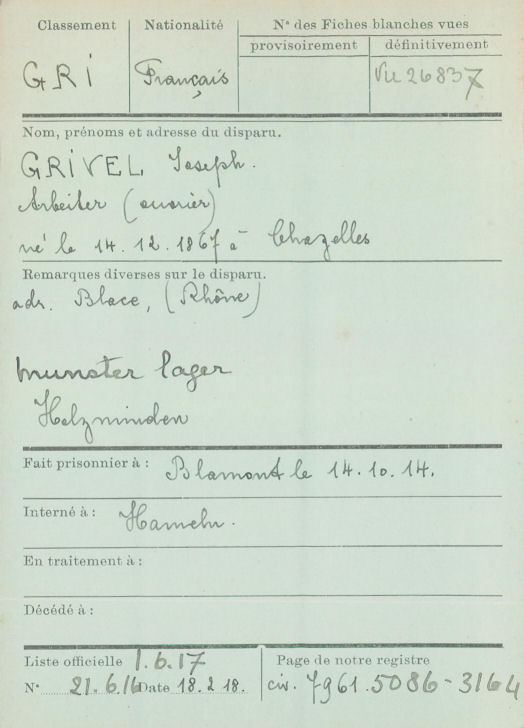 Classement
Nationalité
Nos des Fiches blanches vues
provisoirement
définitivement
GRI
Français
Vu 26837
Nom, prénoms et adresse du disparu.
GRIVEL Joseph.
Arbeiter (ouvrier)
né le 14.12.1867 à Chazelles
Remarques diverses sur le disparu.
adr. Blace, (Rhône)
munster lager
Holzminden
Fait prisonnier à : Blamont le 14.10.14.
Interné à : Hameln.
En traitement à :
Décédé à :
Liste officielle 1.6.17
No 21.6.16 Date 18.2.18.
Page de notre registre
civ. 7961.5086-3164